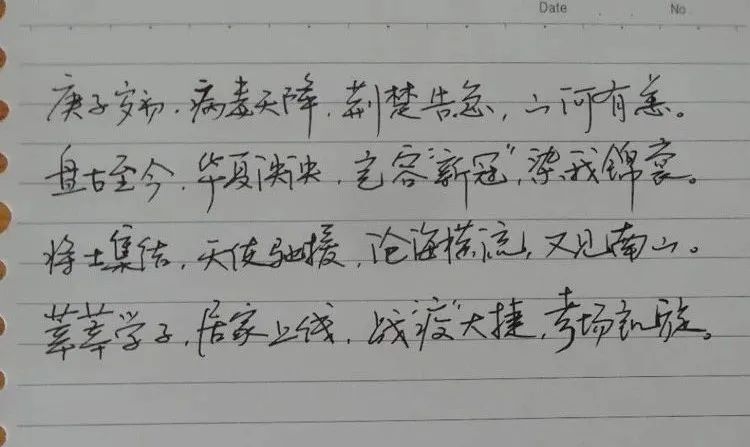 Date No
庚子岁初,病毒天降,荆楚告急,山河有恙。
盘古至今,华夏泱泱,岂容"新冠",染我锦裳。
将士集结,天使驰援,沧海横流,又见南山。
莘莘学子,居家上线,战"疫"大捷,考场凯旋。